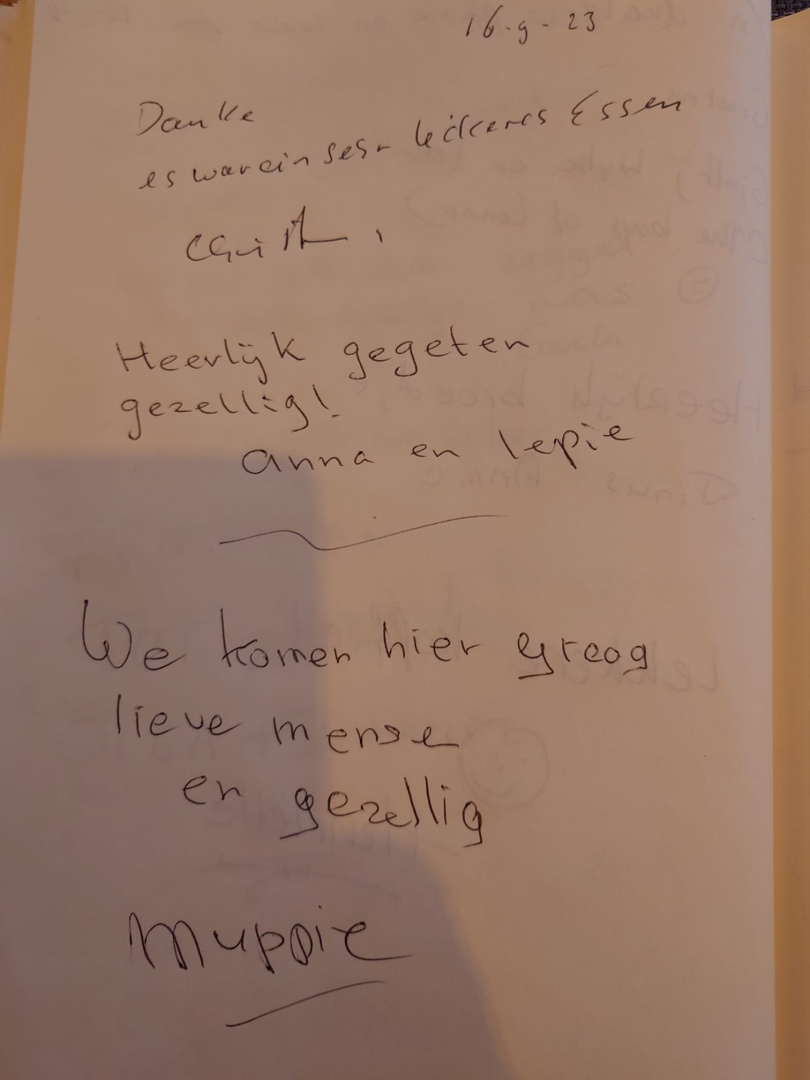 16-9-23
Danke
es war ein sehr leckeres Essen
Heerlijk gegeten
gezellig!
anna en lepie
We komen hier greag
lieve mense
en gezellig
muppie